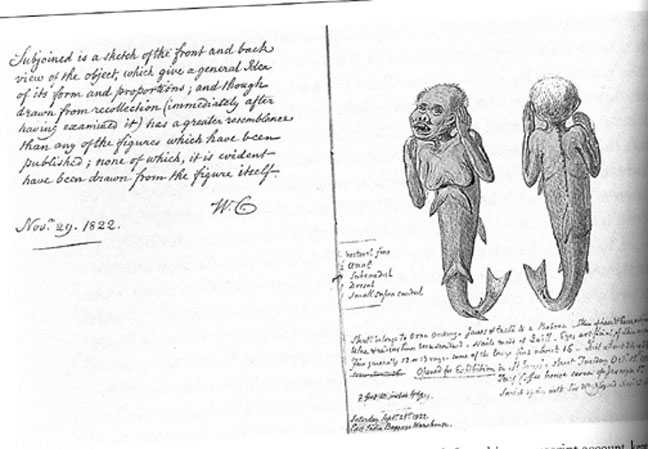 Subjoined is a sketch of the front and back
view of the object, which give a general Idea
of its form and proportions; and though
drawn from recollection (immediately after
having examined it) has a greater resemblance
than any of the figures which have been
published; none of which, it is evident
have been drawn from the figure itself.
W. C
Novr. 29. 1822.
pectoral fins
Anal
Subcaudal
Dorsal
Small supra caudal
Skull belongs to Oran Outang jaws & teeth to a Baboon.
have been Nails made of Quill. Eyes artificial
fins generally 12 or 13 rays some of the large fins about 16
Opened for Exhibition in St James's street Tuesday Octr. 15.
Coffee house corner of
Saw it again with Sir
Saturday Septr. 21st 1822.
East India Baggage Warehouse.
account kept